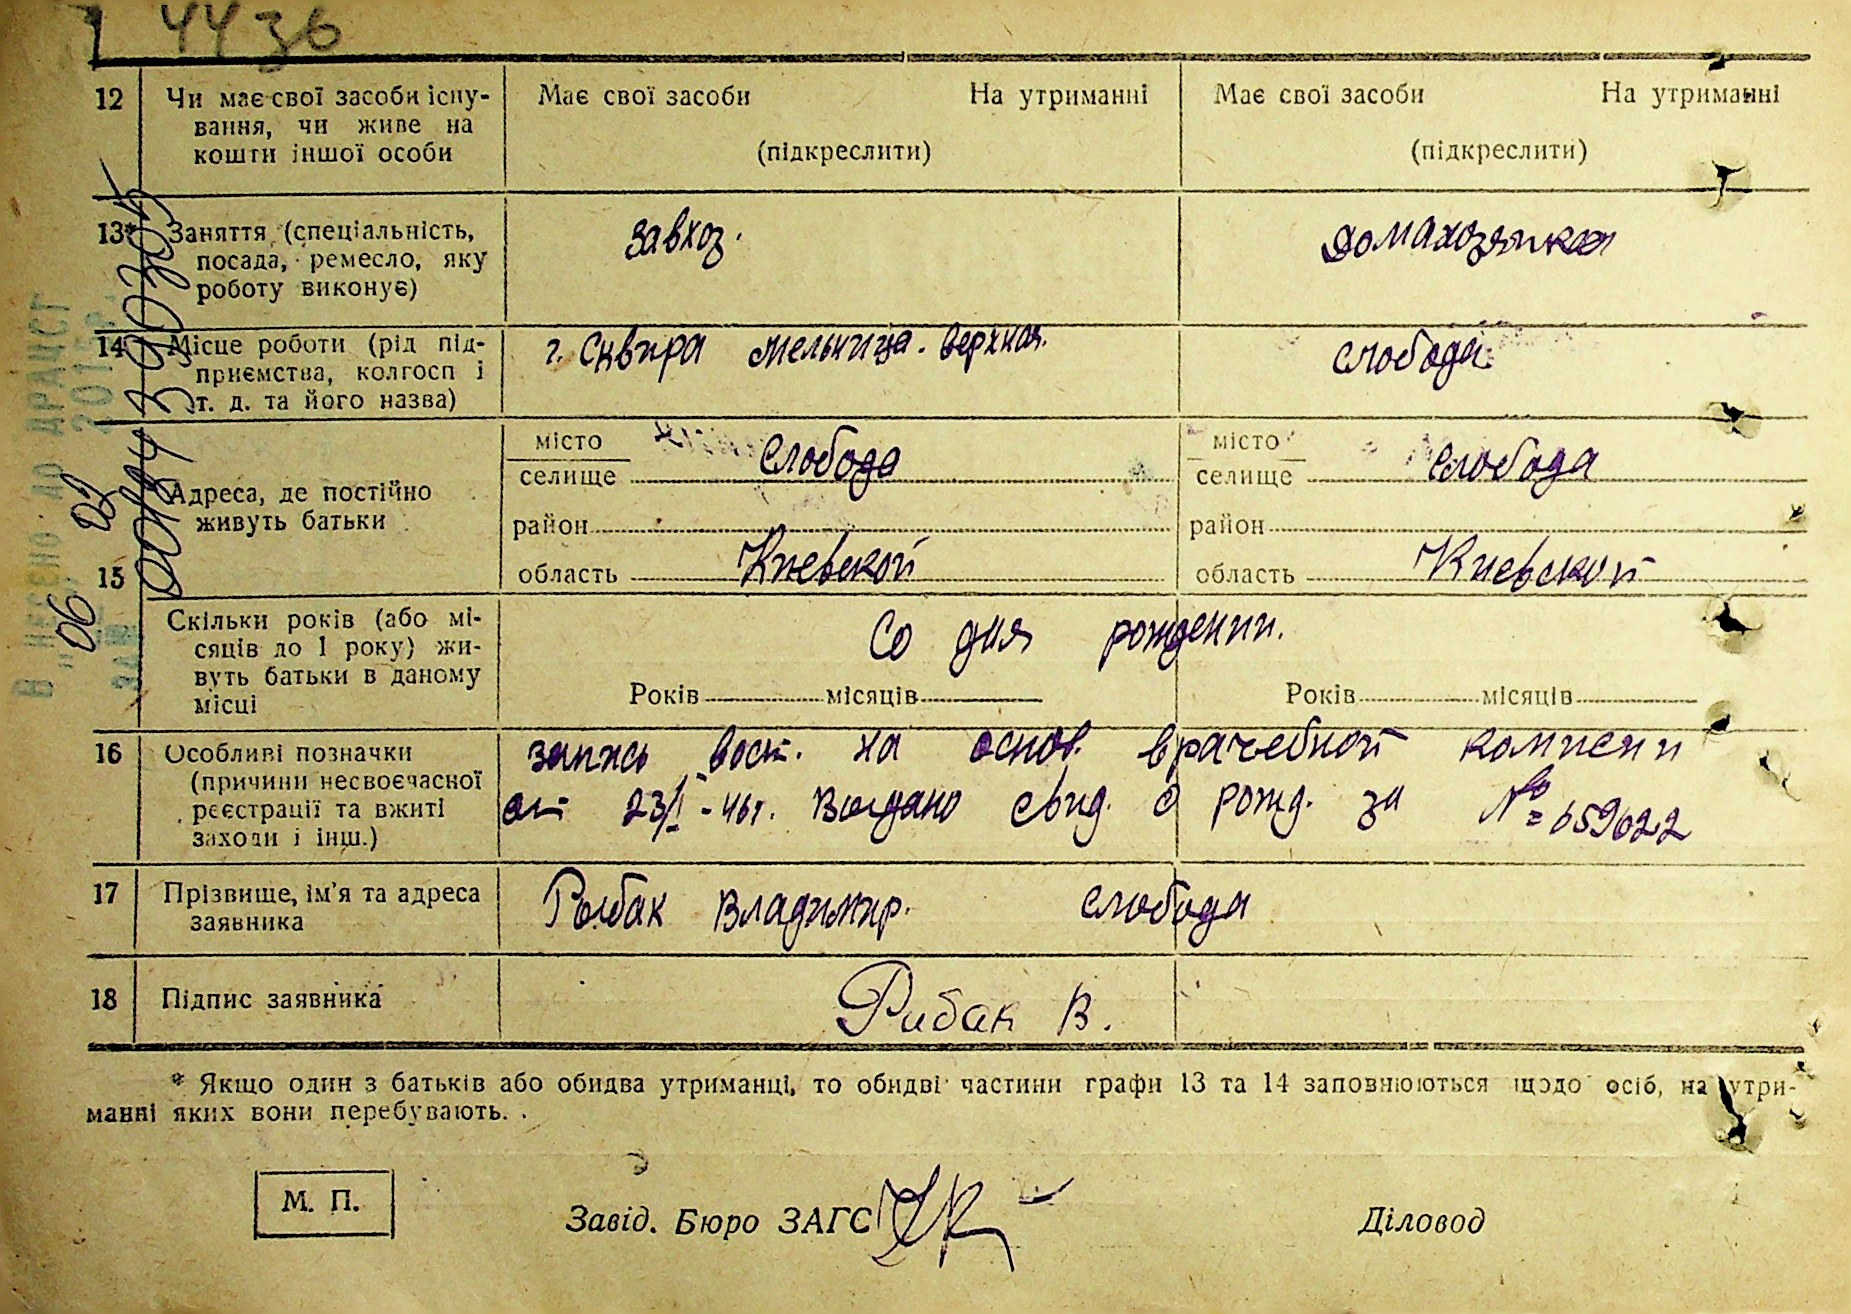 4436
12 Чи має свої засоби існу- Має свої засоби На утриманні Має свої засоби На утриманні
вання, чи живе на
кошти іншої особи (підкреслити) (підкреслити)
13* Заняття (спеціальність, завхоз. домахозяйка
посада, ремесло, яку
роботу виконує)
14* Місце роботи (рід під- г. Сквира мельница. верхняя. слобода
приємства, колгосп і
т. д. та його назва)
15 Адреса, де постійно
живуть батьки
місто місто
селище слобода селище слобода
район район
область Киевской область Киевской
Скільки років (або мі- Со дня рождении.
сяців до 1 року) жи-
вуть батьки в даному Років місяців Років місяців
місці
16 Особливі позначки запись вост. на основ. врачебной комисии
(причини несвоєчасної
реєстрації та вжиті от 23/I-46г. Выдано свид. о рожд. за № 659622
заходи і інш.)
17 Прізвище, ім'я та адреса Рыбак Владимир. слобода
заявника
18 Підпис заявника Рибак В.
* Якщо один з батьків або обидва утриманці, то обидві частини графи 13 та 14 заповнюються щодо осіб, на утри-
манні яких вони перебувають.
М. П. Завід. Бюро ЗАГС Діловод